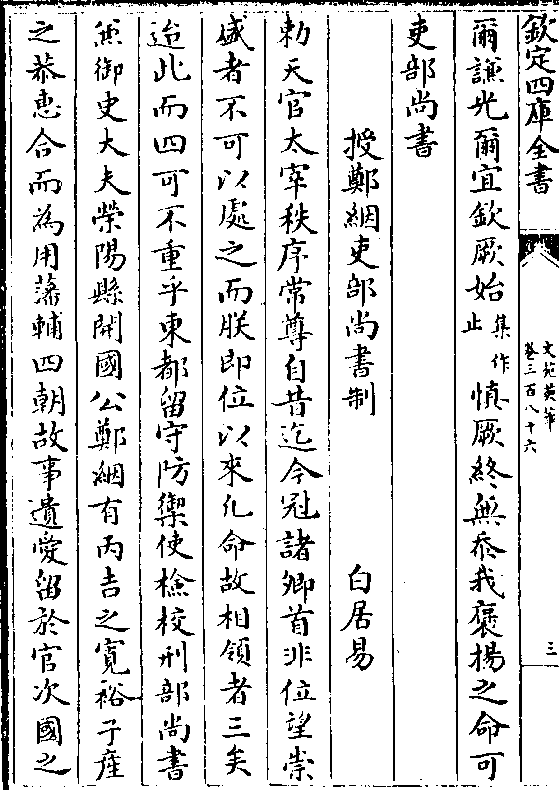 欽定四庫全書
文苑英華
卷三百八十六
三
爾謙光爾宜欽厥始集作止慎厥終無忝我褒揚之命可
吏部尚書
授鄭絪吏部尚書制 白居易
勑天官太宰秩序常尊自昔迄今冠諸卿首非位望崇
盛者不可以處之而朕即位以來凡命故相領者三矣
迨此而四可不重乎東都留守防禦使檢校刑部尚書
兼御史大夫滎陽縣開國公鄭絪有丙吉之寛裕子産
之恭惠合而為用藩輔四朝故事遺愛留於官次國之